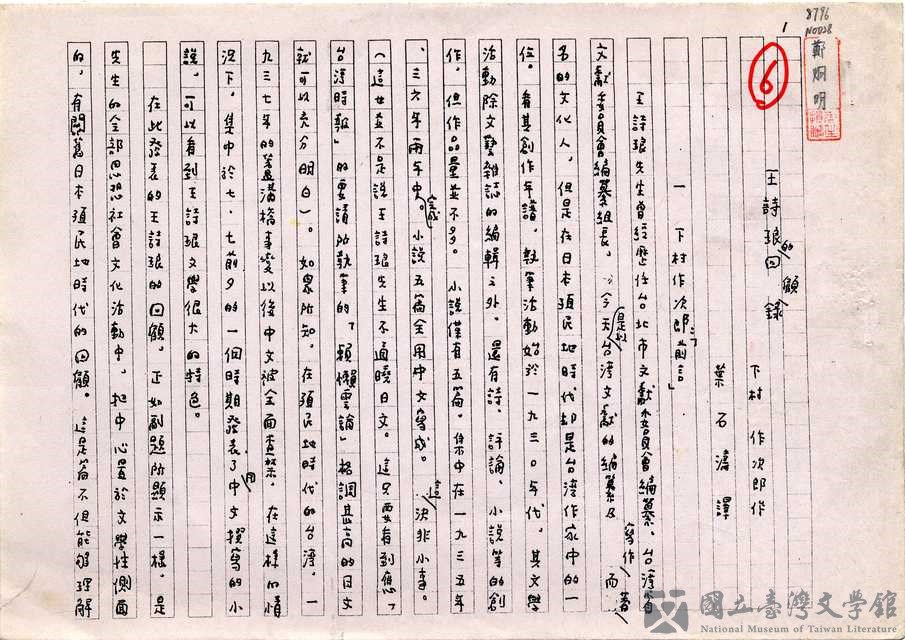 8796
N0028
鄭烱明
1
6
王詩琅的回顧錄
下村作次郎作
葉石濤譯
一 下村作次郎:「前言」
王詩琅先生曾經歷任台北市文獻委員會編纂、台灣省
文獻委員會編纂組長。今天是以台灣文獻的編纂及寫作而著
名的文化人,但是在日本殖民地時代却是台灣作家中的一
位。看其創作年譜,執筆活動始於一九三〇年代,其文學
活動除文藝雜誌的編輯之外,還有詩、評論、小說等的創
作,但作品量並不多。小說僅有五篇。集中在一九三五年
、三六年兩年中。小說五篇全用中文寫成。這決非小事。
(這並不是說王詩琅先生不通曉日文。這只要看到應「
台灣時報」的要請所執筆的「賴懶雲論」格調甚高的日文
就可以充分明白)。如眾所知,在殖民地時代的台灣,一
九三七年的蘆溝橋事變以後中文被全面查禁。在這樣的情
況下,集中於七·七前夕的一個時期發表了用中文撰寫的小
說,可以看到王詩琅文學很大的特色。
在此發表的王詩琅的回顧,正如副題所顯示一樣,是
先生的全部思想社會文化活動中,把中心置於文學性側面
的,有關舊日本殖民地時代的回顧。這是篇不但能夠理解
國立臺灣文學館
National Museum of Taiwan Literature